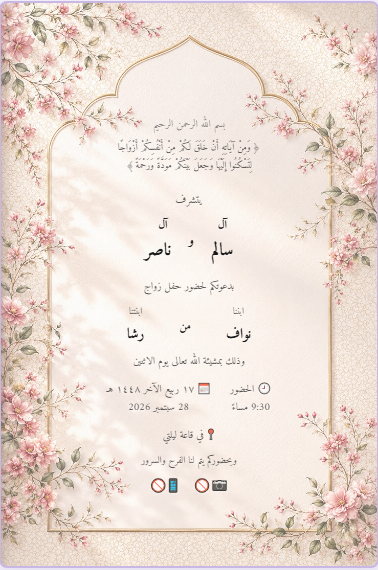 بسم الله الرحمن الرحيم
﴿ وَمِنْ آيَاتِهِ أَنْ خَلَقَ لَكُمْ مِنْ أَنْفُسِكُمْ أَزْوَاجًا
لِتَسْكُنُوا إِلَيْهَا وَجَعَلَ بَيْنَكُمْ مَوَدَّةً وَرَحْمَةً ﴾
يتشرف
آل آل
سالم و ناصر
بدعوتكم لحضور حفل زواج
ابننا ابنتنا
نواف من رشا
وذلك بمشيئة الله تعالى يوم الاثنين
الحضور ١٧ ربيع الآخر ١٤٤٨ هـ
9:30 مساءً 28 سبتمبر 2026
في قاعة ليلتي
وبحضوركم يتم لنا الفرح والسرور